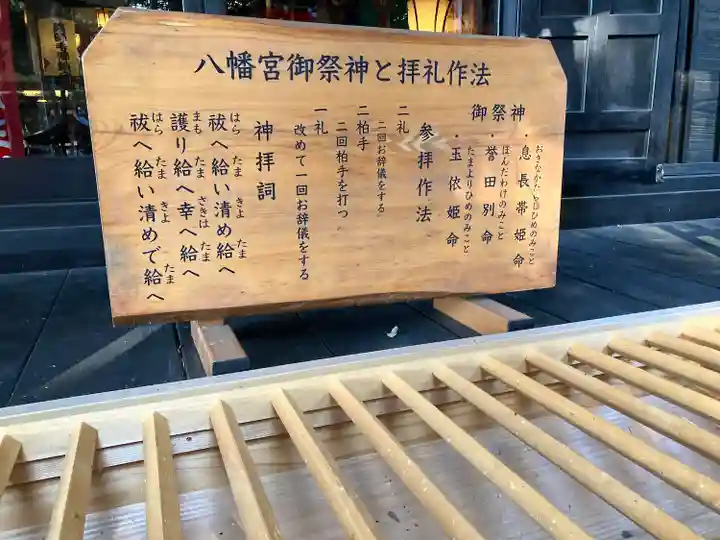 八幡宮御祭神と拝礼作法
御祭神
おきながたらしひめのみこと
・息長帯姫命
ほんだわけのみこと
・誉田別命
たまよりひめのみこと
・玉依姫命
参拝作法
二礼
二回お辞儀をする
二柏手
二回柏手を打つ。
一礼
改めて一回お辞儀をする
神拝詞
はら たま きよ たま
祓へ給い清め給へ
まも たま さきは たま
護り給へ幸へ給へ
はら たま きよ たま
祓へ給い清めで給へ